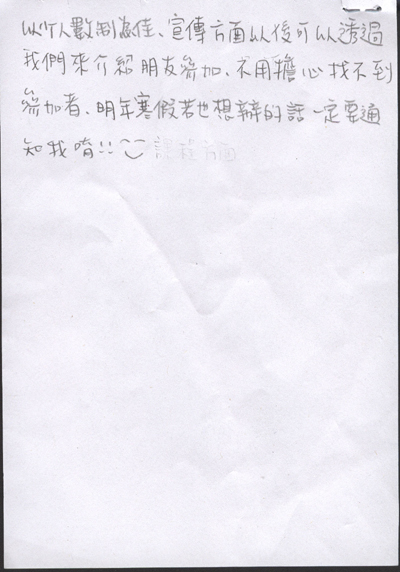 以少人數制為佳、宣傳方面以後可以透過
我們來介紹朋友參加、不用擔心找不到
參加者、明年寒假若也想辦的話一定要通
知我唷!! 課程方面